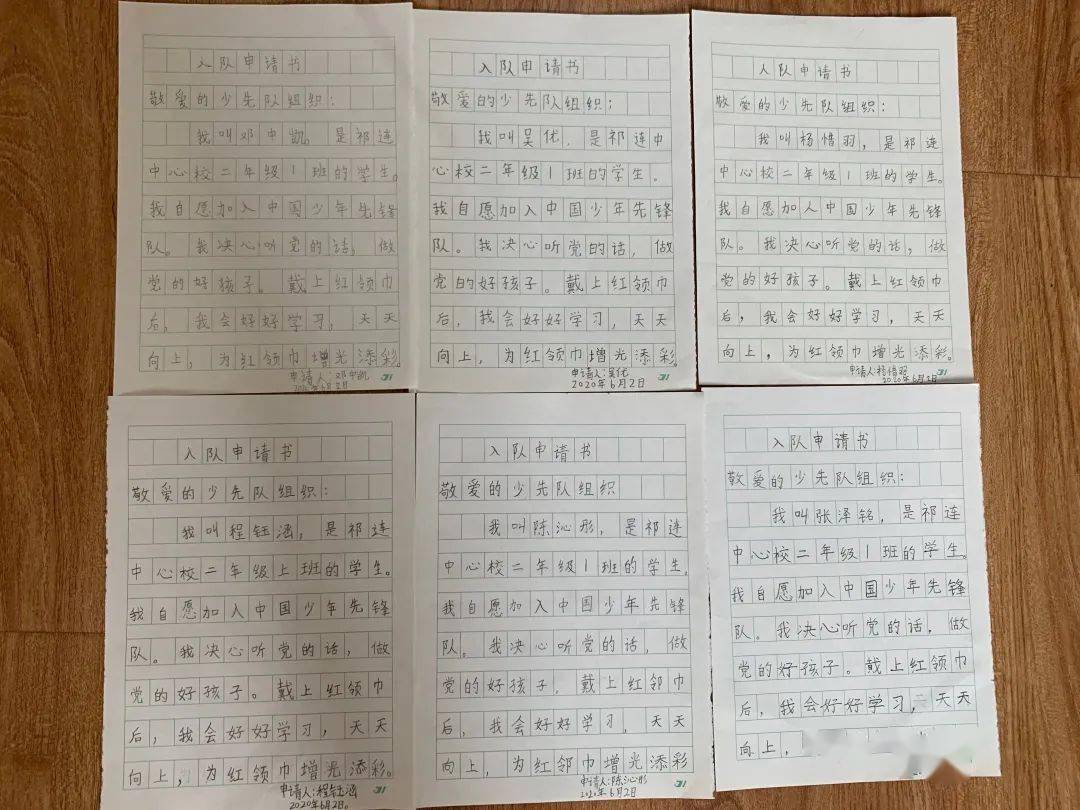 入队申请书
敬爱的少先队组织：
我叫邓中凯，是祁连
中心校二年级1班的学生。
我自愿加入中国少年先锋
队。我决心听党的话，做
党的好孩子。戴上红领巾
后，我会好好学习，天天
向上，为红领巾增光添彩。
申请人：邓中凯
2020年6月2日
入队申请书
敬爱的少先队组织：
我叫吴优，是祁连中
心校二年级1班的学生。
我自愿加入中国少年先锋
队。我决心听党的话，做
党的好孩子。戴上红领巾
后，我会好好学习，天天
向上，为红领巾增光添彩。
申请人：吴优
2020年6月2日
人队申请书
敬爱的少先队组织：
我叫杨惜羽，是祁连
中心校二年级1班的学生。
我自愿加人中国少年先锋
队。我决心听党的话，做
党的好孩子。戴上红领巾
后，我会好好学习，天天
向上，为红领巾增光添彩。
申请人：杨惜羽
2020年6月2日
入队申请书
敬爱的少先队组织：
我叫程钰涵，是祁连
中心校二年级上班的学生。
我自愿加入中国少年先锋
队。我决心听党的话，做
党的好孩子。戴上红领巾
后，我会好好学习，天天
向上，为红领巾增光添彩。
申请人：程钰涵
2020年6月2日。
入队申请书
敬爱的少先队组织
我叫陈沁彤，是祁连
中心校二年级1班的学生，
我自愿加入中国少年先锋
队。我决心听党的话，做
党的好孩子，戴上红邻巾
后，我会好好学习，天天
向上，为红邻巾增光添彩
申请人：陈沁彤
2020年6月2日
入队申请书
敬爱的少先队组织：
我叫张泽铭，是祁连
中心校二年级1班的学生。
我自愿加入中国少年先锋
队。我决心听党的话，做
党的好孩子。戴上红领巾
后，我会好好学习，天天
向上，